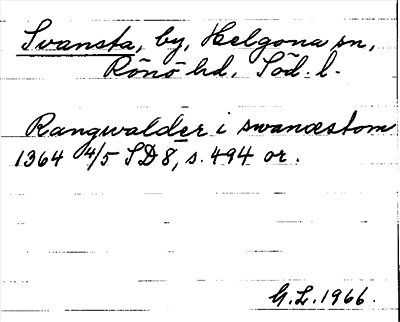 Svansta, by, Helgona sn,
Rönö hd, Söd. l.
Rangwalder i swanæstom
1364 4/5 SD 8, s. 494 or.
G.L. 1966.